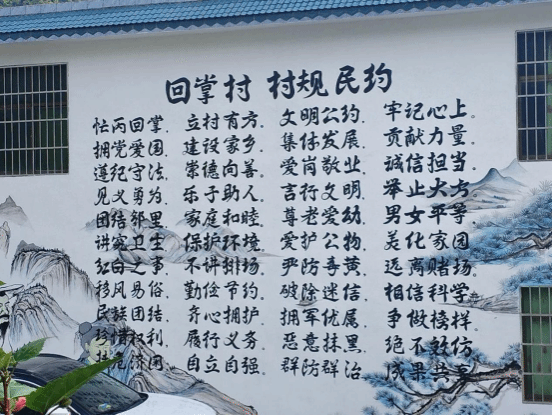 回掌村 村规民约
忙丙回掌，立村有方，文明公约，牢记心上。
拥党爱国，建设家乡，集体发展，贡献力量。
遵纪守法，崇德向善，爱岗敬业，诚信担当。
见义勇为，乐于助人，言行文明，举止大方
团结邻里，家庭和睦，尊老爱幼，男女平等。
讲究卫生，保护环境，爱护公物，美化家园
红白之事，不讲排场，严防毒黄，远离赌场。
移风易俗，勤俭节约，破除迷信，相信科学。
民族团结，齐心拥护，拥军优属，争做榜样。
珍惜权利，履行义务，恶意抹黑，绝不效仿
扶危济困，自立自强，群防群治，成果共享